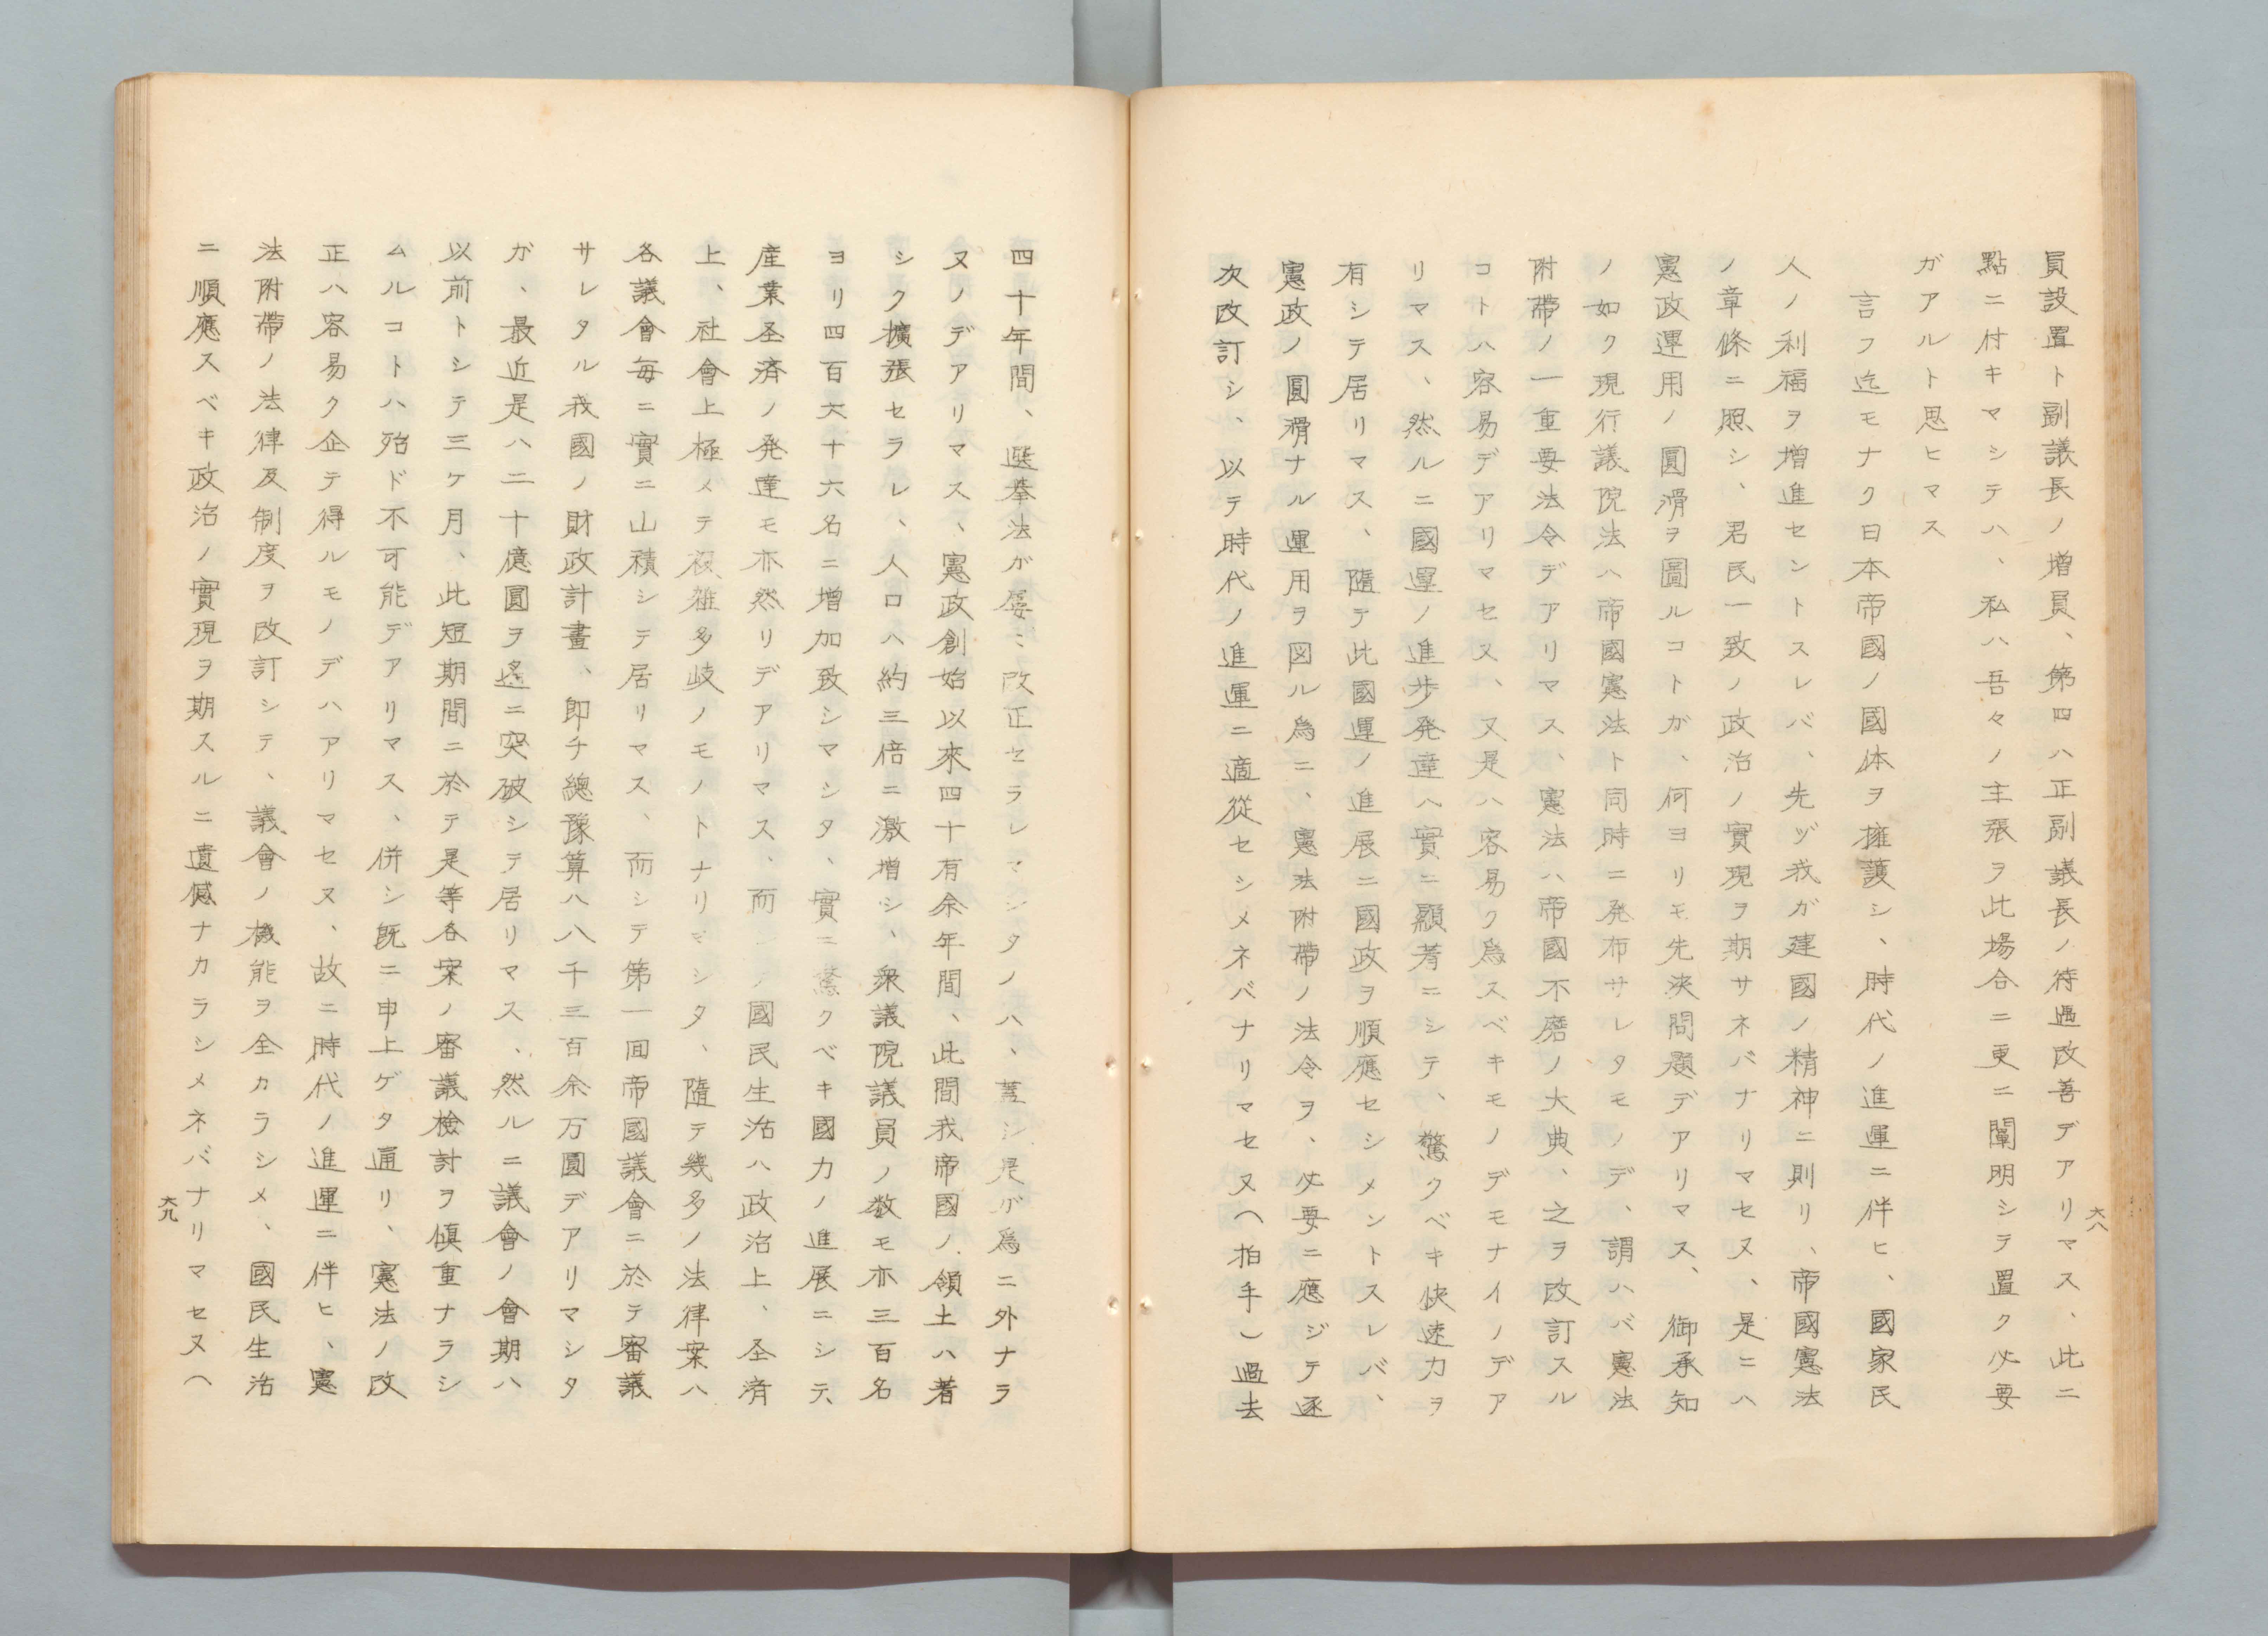 員設置ト副議長ノ増員、第四ハ正副議長ノ待遇改善デアリマス、此ニ
點ニ付キマシテハ、私ハ吾々ノ主張ヲ此場合ニ更ニ闡明シテ置ク必要
ガアルト思ヒマス
言フ迄モナク日本帝國ノ國体ヲ擁護シ、時代ノ進運ニ伴ヒ、國家民
人ノ利福ヲ増進セントスレバ、先ヅ我ガ建國ノ精神ニ則リ、帝國憲法
ノ章條ニ照シ、君民一致ノ政治ノ實現ヲ期サネバナリマセヌ、是ニハ
憲政運用ノ圓滑ヲ圖ルコトガ、何ヨリモ先決問題デアリマス、御承知
ノ如ク現行議院法ハ帝國憲法ト同時ニ発布サレタモノデ、謂ハバ憲法
附帶ノ一重要法令デアリマス、憲法ハ帝國不磨ノ大典、之ヲ改訂スル
コトハ容易デアリマセヌ、又是ハ容易ク為スベキモノデモナイノデア
リマス、然ルニ國運ノ進歩発達ハ實ニ顯著ニシテ、驚クベキ快速力ヲ
有シテ居リマス、隨テ此國運ノ進展ニ國政ヲ順應セシメントスレバ、
憲政ノ圓滑ナル運用ヲ図ル為ニ、憲法附帶ノ法令ヲ、必要ニ應ジテ逐
次改訂シ、以テ時代ノ進運ニ適從セシメネバナリマセヌ(拍手)過去
六八
四十年間、選挙法ガ屡〻改正セラレマシタノハ、蓋シ是ガ為ニ外ナラ
ヌノデアリマス、憲政創始以來四十有余年間、此間我帝國ノ領土ハ著
シク擴張セラレ、人口ハ約三倍ニ激増シ、衆議院議員ノ数モ亦三百名
ヨリ四百六十六名ニ増加致シマシタ、實ニ驚クベキ國力ノ進展ニシテ、
産業圣済ノ発達モ亦然リデアリマス、而シテ國民生活ハ政治上、圣済
上、社會上極メテ複雑多岐ノモノトナリマシタ、隨テ幾多ノ法律案ハ
各議會毎ニ實ニ山積シテ居リマス、而シテ第一回帝國議會ニ於テ審議
サレタル我國ノ財政計畫、即チ總豫算ハ八千三百余万圓デアリマシタ
ガ、最近是ハ二十億圓ヲ遙ニ突破シテ居リマス、然ルニ議會ノ會期ハ
以前トシテ三ケ月、此短期間ニ於テ是等各案ノ審議檢討ヲ慎重ナラシ
ムルコトハ殆ド不可能デアリマス、併シ既ニ申上ゲタ通リ、憲法ノ改
正ハ容易ク企テ得ルモノデハアリマセヌ、故ニ時代ノ進運ニ伴ヒ、憲
法附帶ノ法律及制度ヲ改訂シテ、議會ノ機能ヲ全カラシメ、國民生活
ニ順應スベキ政治ノ實現ヲ期スルニ遺憾ナカラシメネバナリマセヌ(
六九